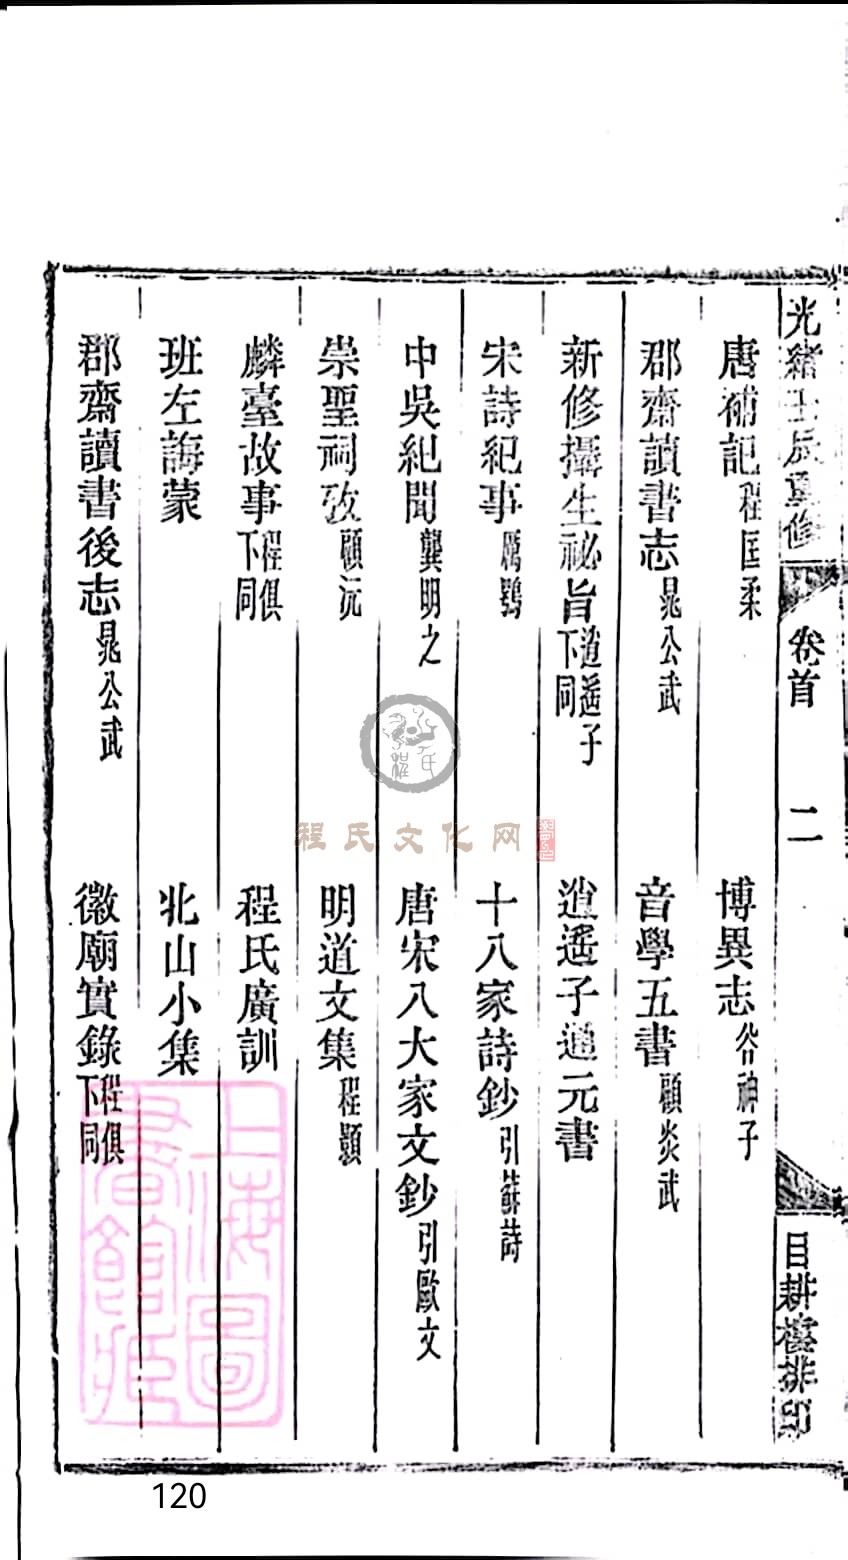 光緒壬辰重修 卷首 二 目耕樓排印
唐補記程匡柔 博異志谷神子
郡齋讀書志晁公武 音學五書顧炎武
新修攝生祕旨逍遙子下同 逍遙子通元書
宋詩紀事厲鶚 十八家詩鈔引蘇詩
中吳紀聞龔明之 唐宋八大家文鈔引歐文
崇聖祠攷顧沅 明道文集程顥
麟臺故事程俱下同 程氏廣訓
班左誨蒙 北山小集
郡齋讀書後志晁公武 徽廟實錄程俱下同
程氏
程氏文化网
上海圖書館藏
120